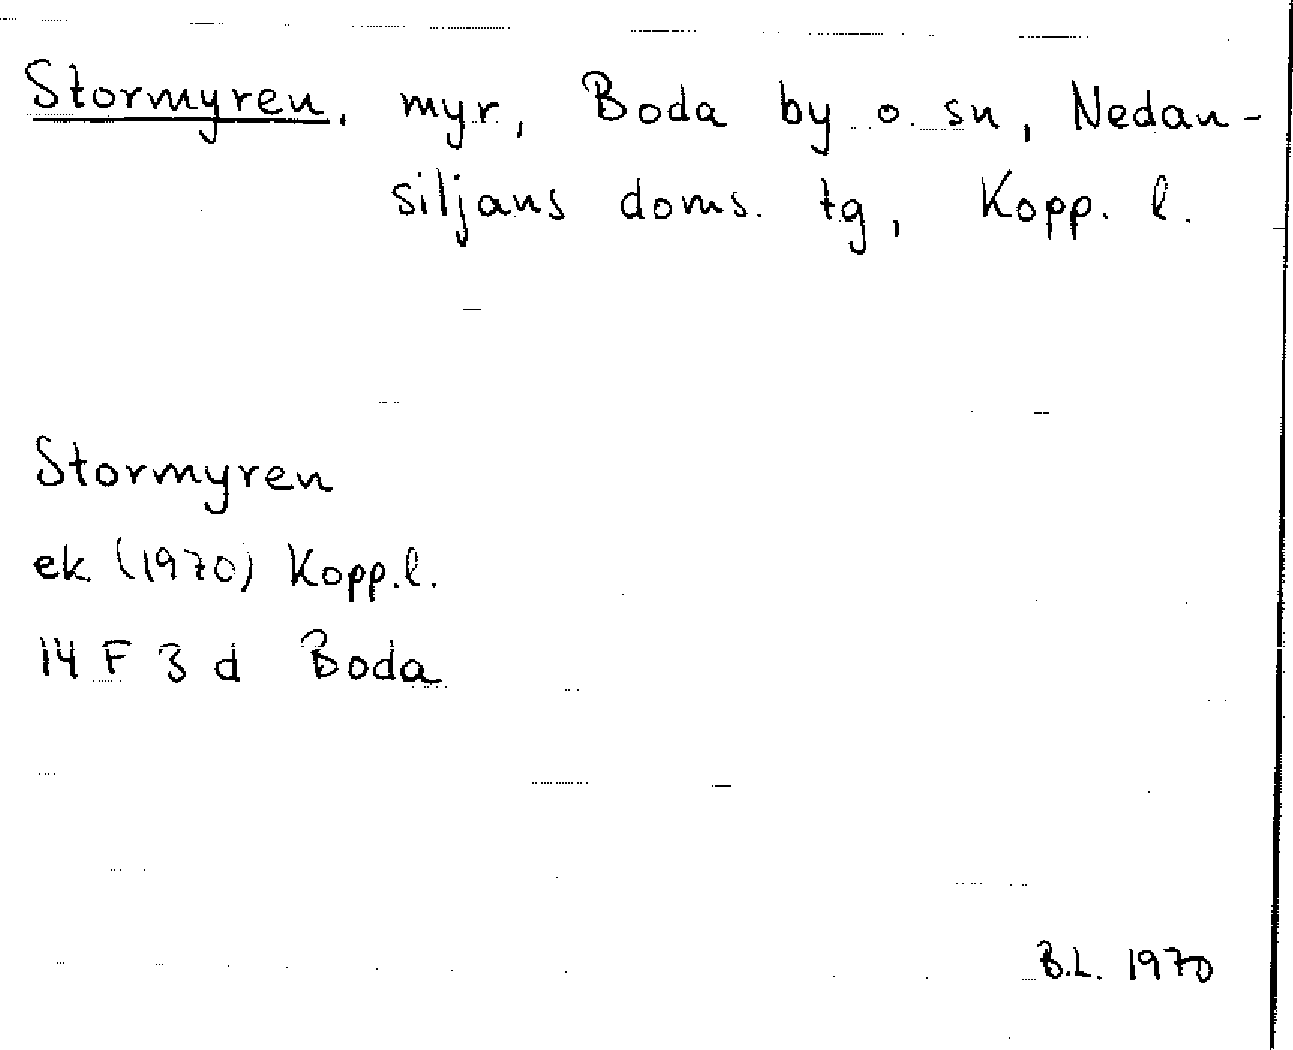 Stormyren, myr, Boda by o. sn, Nedan-
siljans doms. tg, Kopp. l.
Stormyren
ek (1970) Kopp.l.
14 F 3 d Boda
B.L. 1970